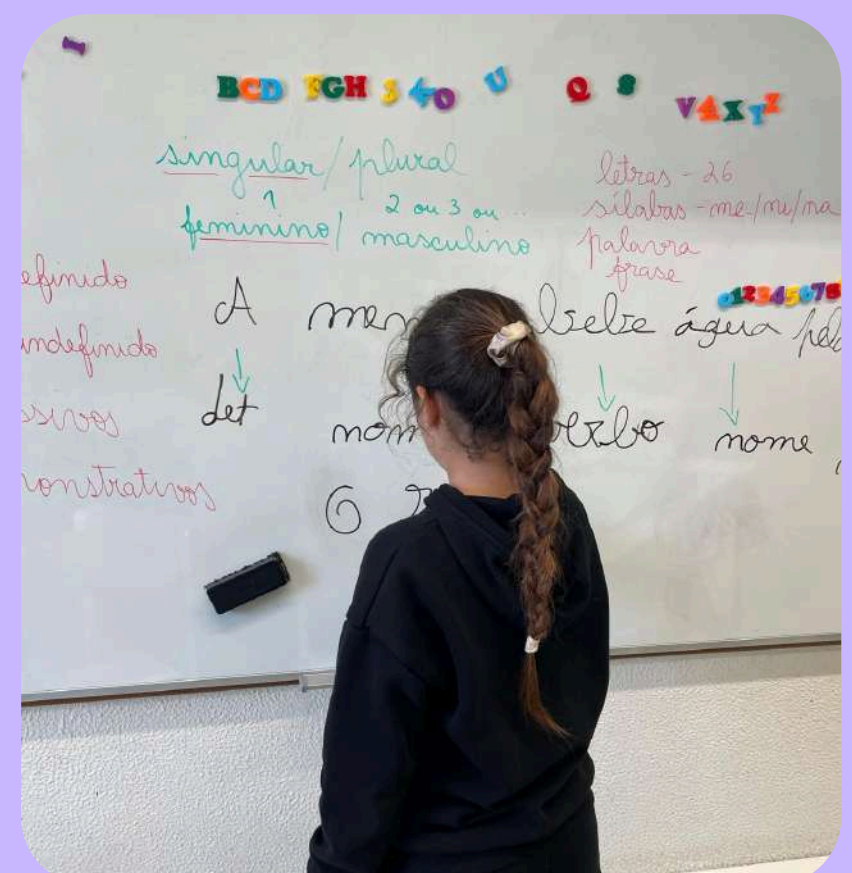 BCD FGH J O U Q S V X Y Z
singular / plural
1 2 ou 3 ou ...
feminino / masculino
letras - 26
sílabas - me-/ni/na
palavra
frase
012345678
efinido
indefinido
ssivos
onstrativos
A men bebe água pel
det nom verbo nome
O